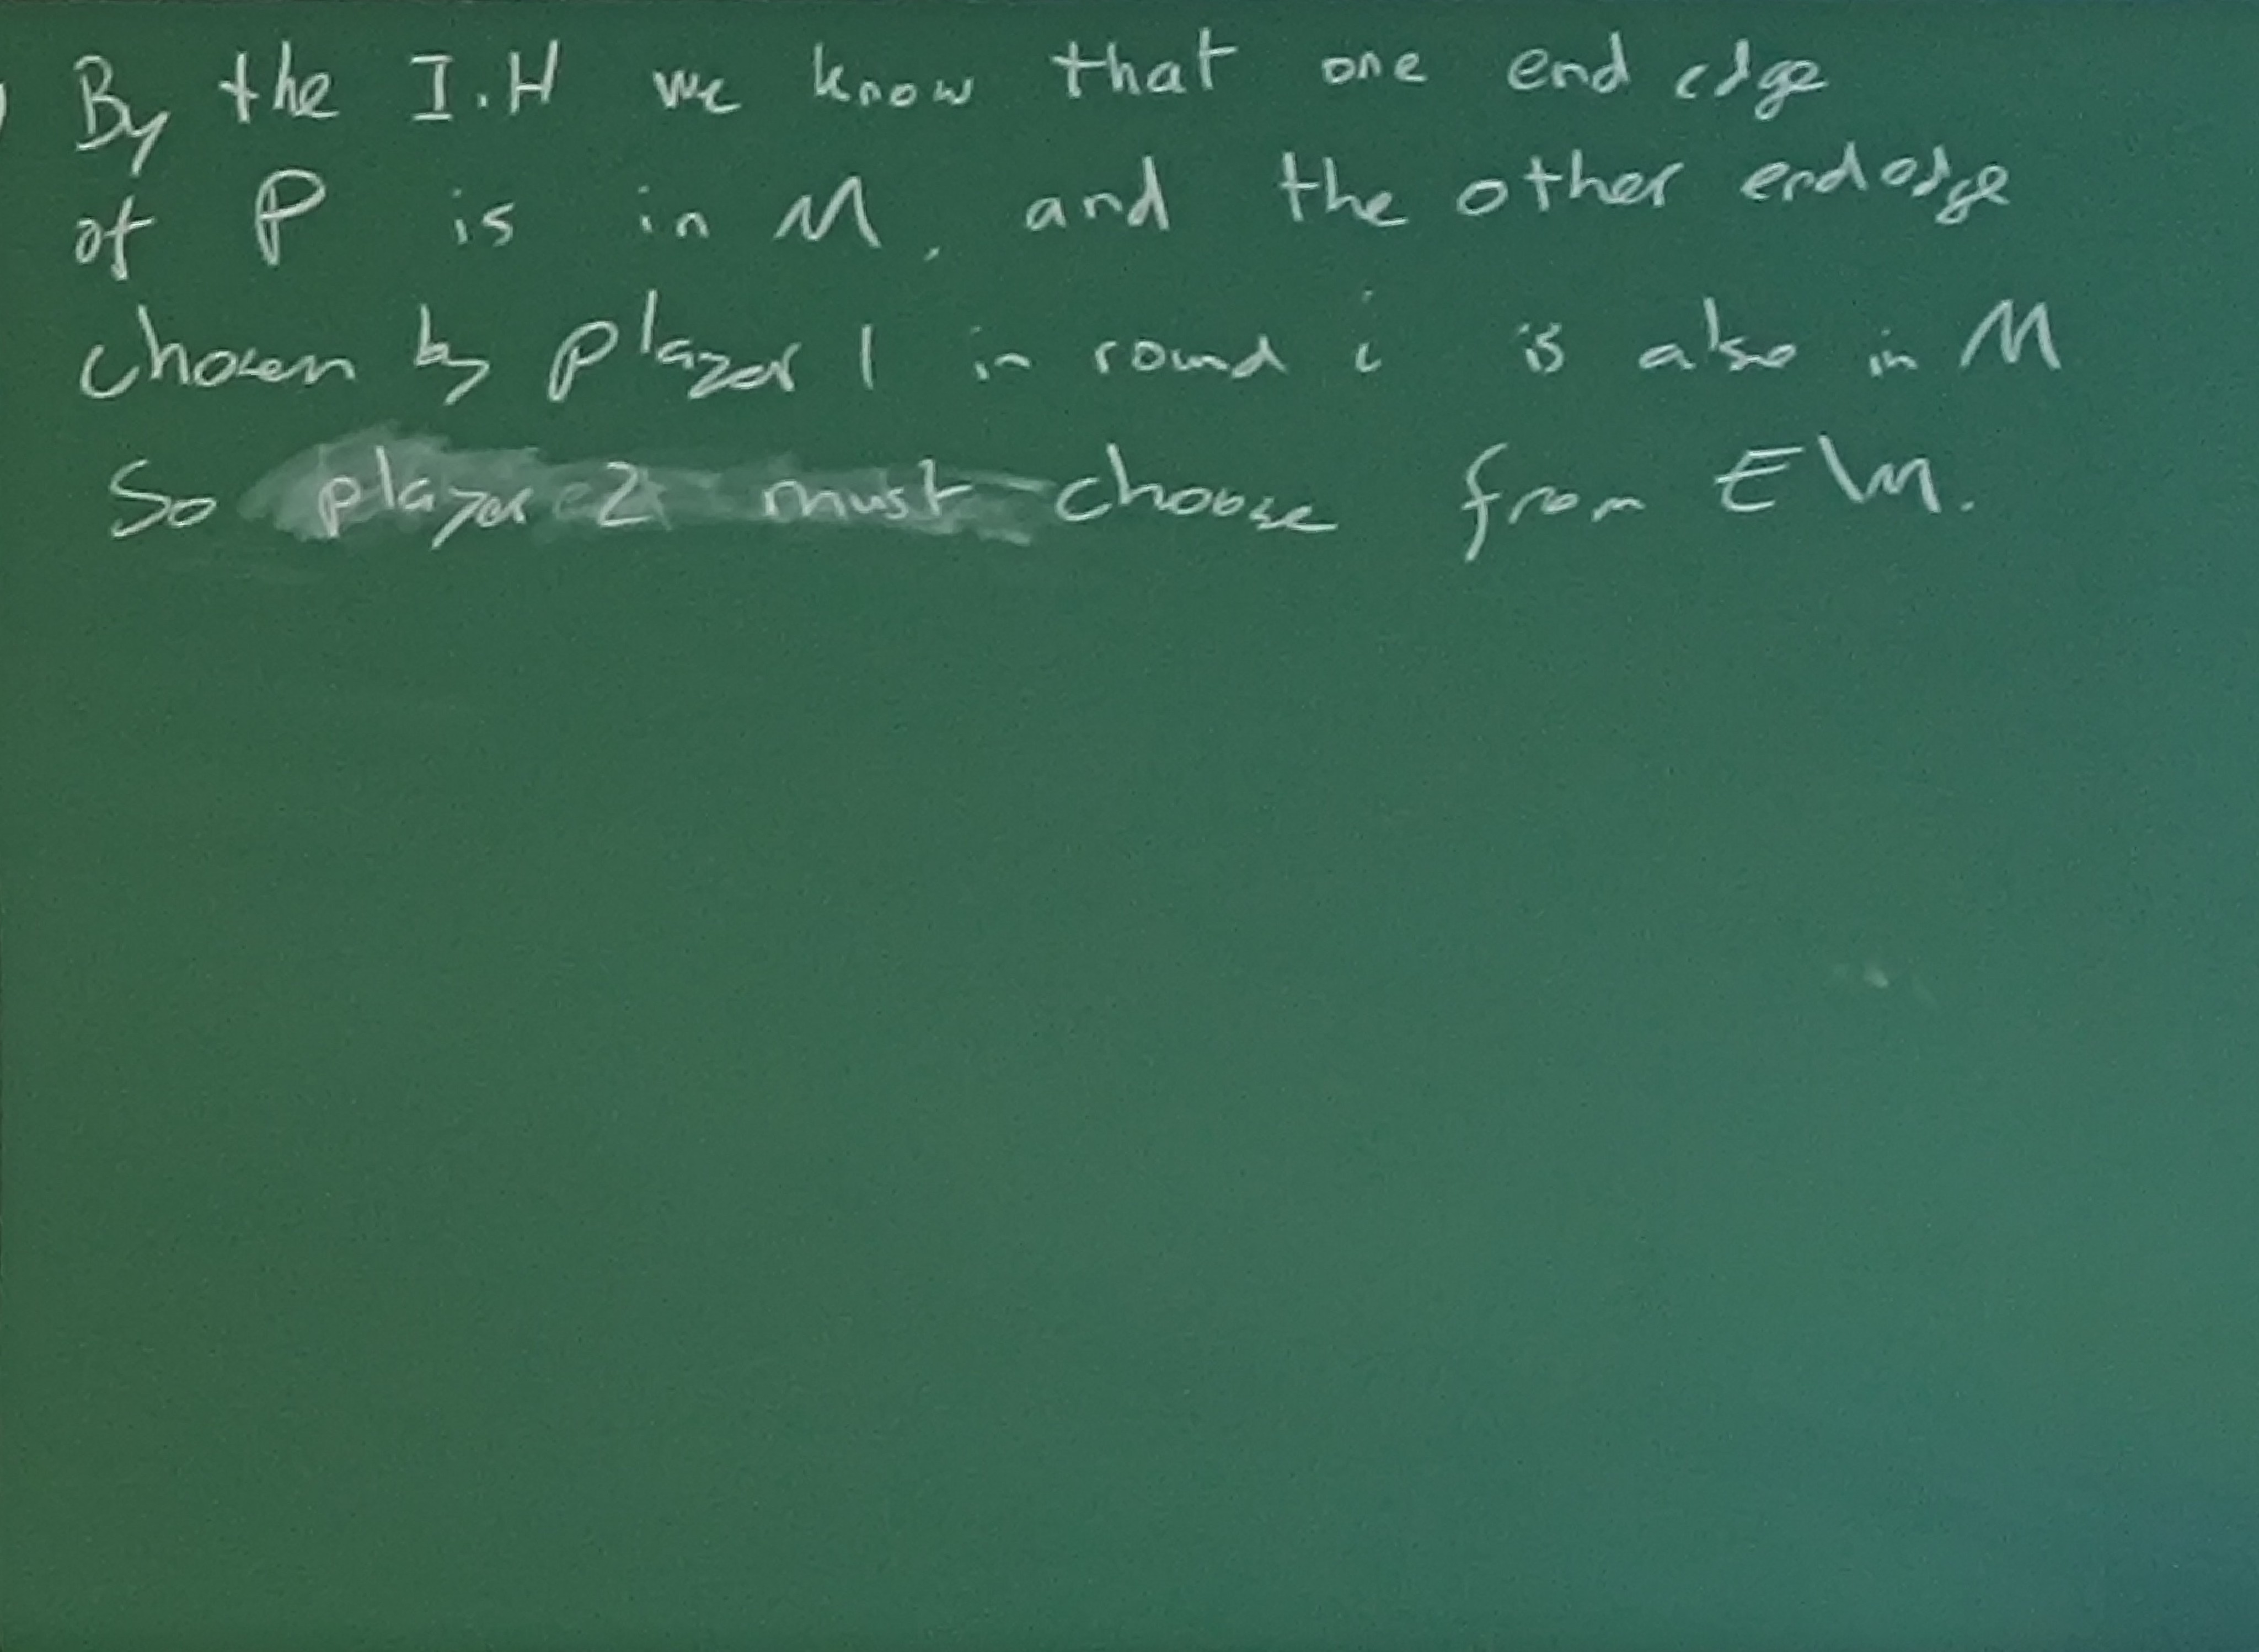 By the I.H we know that one end edge
of P is in M, and the other end edge
chosen by player 1 in round i is also in M
So player 2 must choose from E\M.